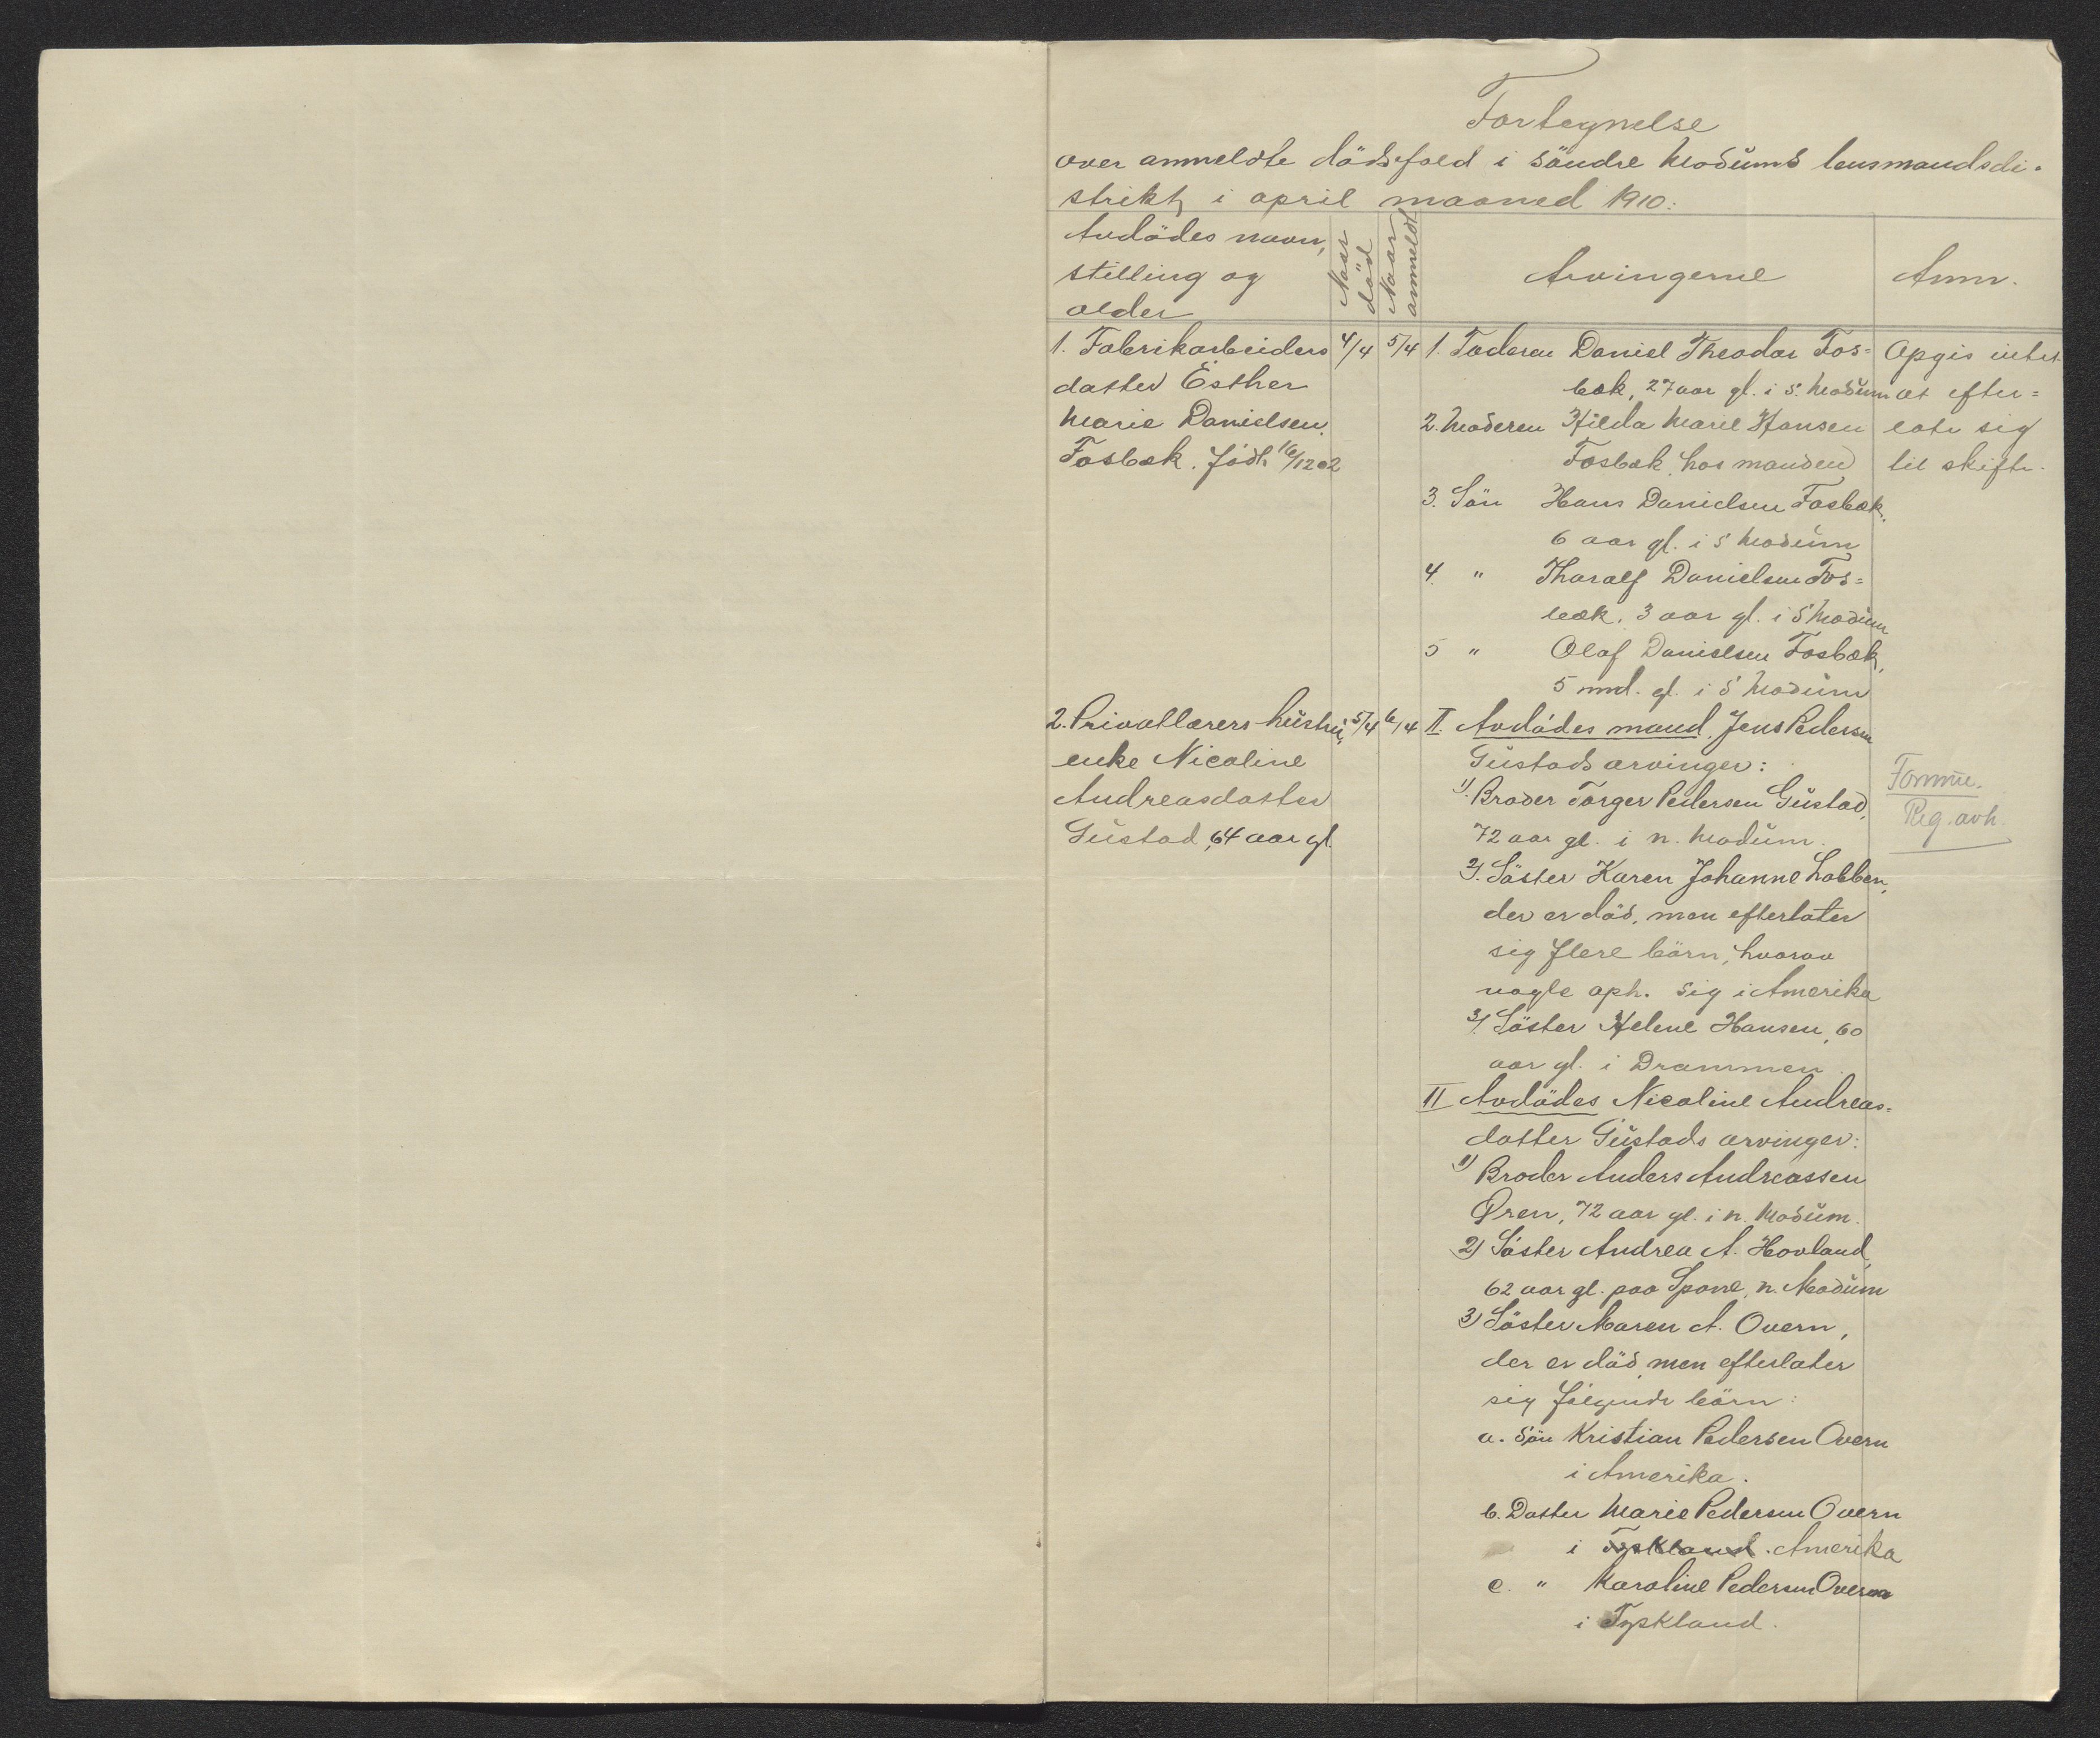 Fortegnelse
over anmeldte dödsfald i söndre Modums lensmandsdi-
strikt, i april maaned 1910:
Avdödes navn,
stilling og
alder
Naar
död
Naar
anmeldt
Arvingerne
Anm.
1. Fabrikarbeiders
datter Esther
Marie Danielsen
Fosbæk. Född 16/12 02
4/4
5/4
1. Faderen Daniel Theodor Fos=
bæk, 27 aar gl. i s. Modum
2. Moderen Hilda Marie Hansen
Fosbæk, hos manden
3. Sön Hans Danielsen Fosbæk,
6 aar gl. i s Modum
4. " Tharalf Danielsen Fos=
bæk, 3 aar gl. i s Modum
5 " Olaf Danielsen Fosbæk,
5 mnd. gl. i s Modum
Opgis intet
at efter=
late sig
til skifte.
2. Privatlærers hustru,
enke Nicoline
Andreasdatter
Gustad, 64 aar gl.
5/4
6/4
I. Avdödes mand, Jens Pedersen
Gustads arvinger:
1). Broder Torger Pedersen Gustad,
72 aar gl. i n. Modum.
2). Söster Karen Johanne Lobben,
der er död, men efterlater
sig flere börn, hvorav
nogle oph. sig i Amerika
3). Söster Helene Hansen, 60
aar gl. i Drammen.
II Avdödes Nicoline Andreas-
datter Gustads arvinger:
1) Broder Anders Andreassen
Øren, 72 aar gl. i n. Modum.
2) Söster Andrea A. Hovland,
62 aar gl. paa Spone, n. Modum
3) Söster Maren A. Overn,
der er död, men efterlater
sig fölgende börn:
a. Sön Kristian Pedersen Overn
i Amerika.
b. Datter Marie Pedersen Overn
i Tyskland. Amerika
c. " Karoline Pedersen Overn
i Tyskland.
Reg. avh.